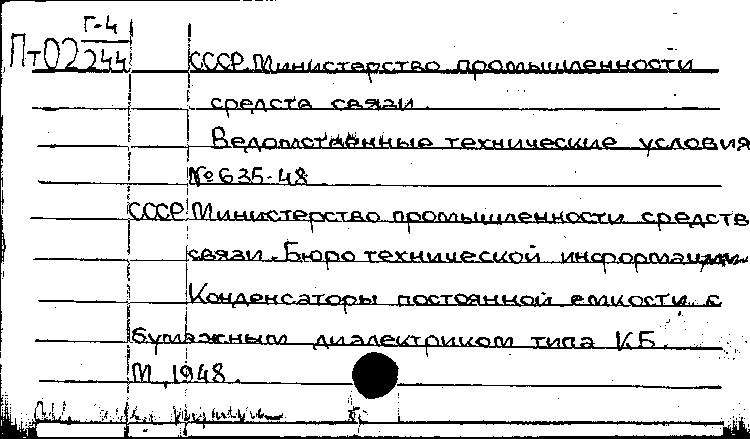 Г-4
Пт02 244
СССР. Министерство промышленности
средств связи.
Ведомственные технические условия
№ 635-48
СССР Министерство промышленности средств
связи. Бюро технической информации
Конденсаторы постоянной емкости с
бумажным диэлектриком типа КБ.
М., 1948.